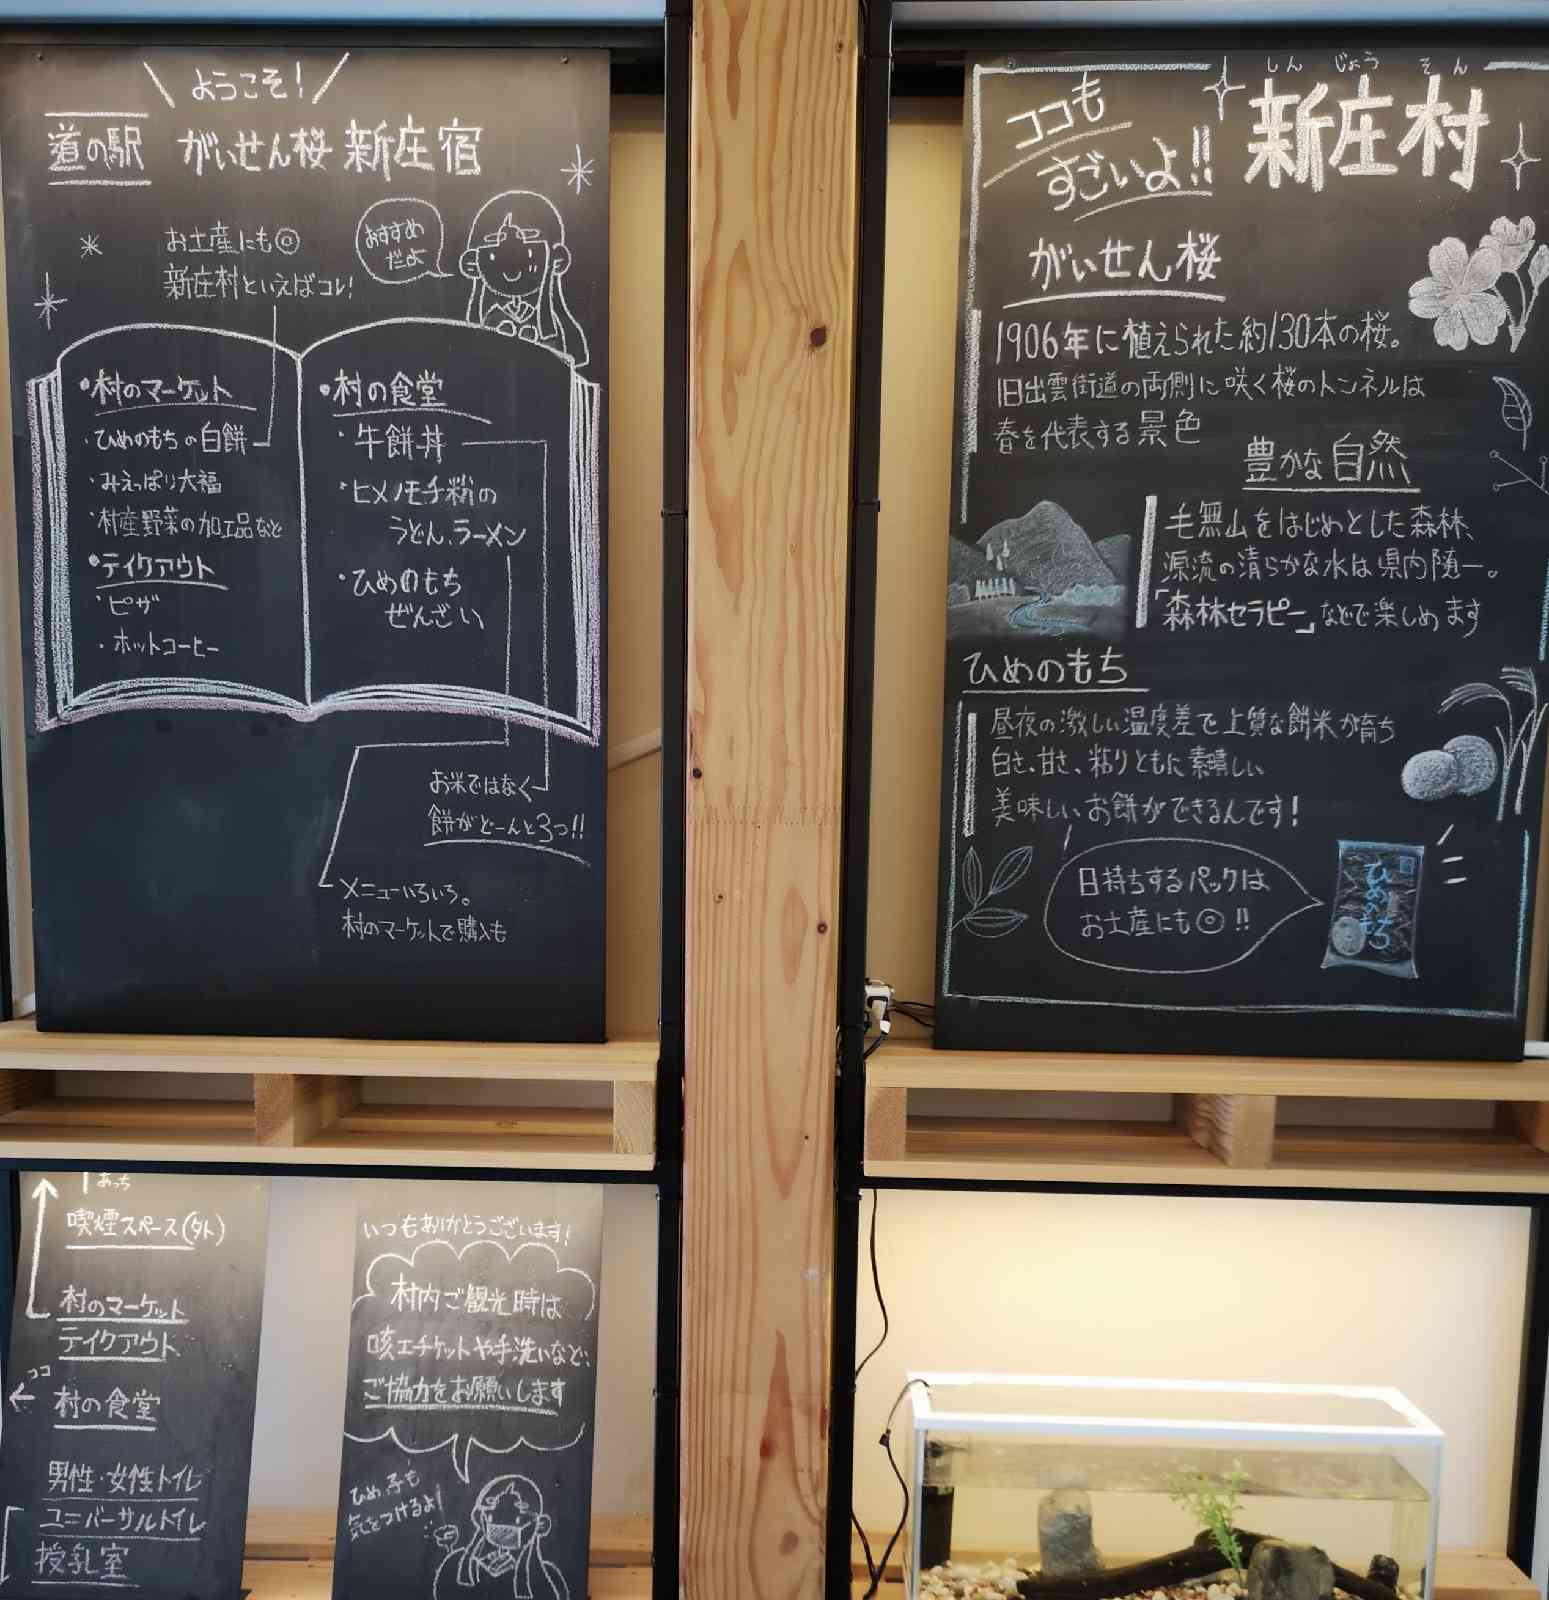 ようこそ!
道の駅 がいせん桜 新庄宿
お土産にも◎
新庄村といえばコレ!
おすすめ
だよ
・村のマーケット
・ひめのもちの白餅
・みえっぱり大福
・村産野菜の加工品など
・テイクアウト
・ピザ
・ホットコーヒー
・村の食堂
・牛餅丼
・ヒメノモチ粉の
うどん、ラーメン
・ひめのもち
ぜんざい
お米ではなく
餅がどーんと3つ!!
メニューいろいろ。
村のマーケットで購入も
ココも
すごいよ!!
しん じょう そん
新庄村
がいせん桜
1906年に植えられた約130本の桜。
旧出雲街道の両側に咲く桜のトンネルは
春を代表する景色
豊かな自然
毛無山をはじめとした森林、
源流の清らかな水は県内随一。
「森林セラピー」などで楽しめます
ひめのもち
昼夜の激しい温度差で上質な餅米が育ち
白さ、甘さ、粘りともに素晴しい
美味しいお餅ができるんです!
日持ちするパックは
お土産にも◎!!
ひめのもち
あっち
喫煙スペース(外)
村のマーケット
テイクアウト
ココ
村の食堂
男性・女性トイレ
ユニバーサルトイレ
授乳室
いつもありがとうございます!
村内ご観光時は
咳エチケットや手洗いなど、
ご協力をお願いします
ひめっ子も
気をつけるよ!